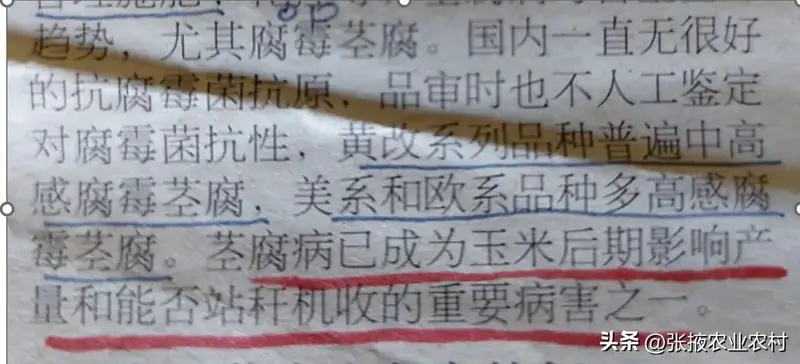 趋势，尤其腐霉茎腐。国内一直无很好
的抗腐霉菌抗原，品审时也不人工鉴定
对腐霉菌抗性，黄改系列品种普遍中高
感腐霉茎腐，美系和欧系品种多高感腐
霉茎腐。茎腐病已成为玉米后期影响产
量和能否站秆机收的重要病害之一。
头条 @张掖农业农村